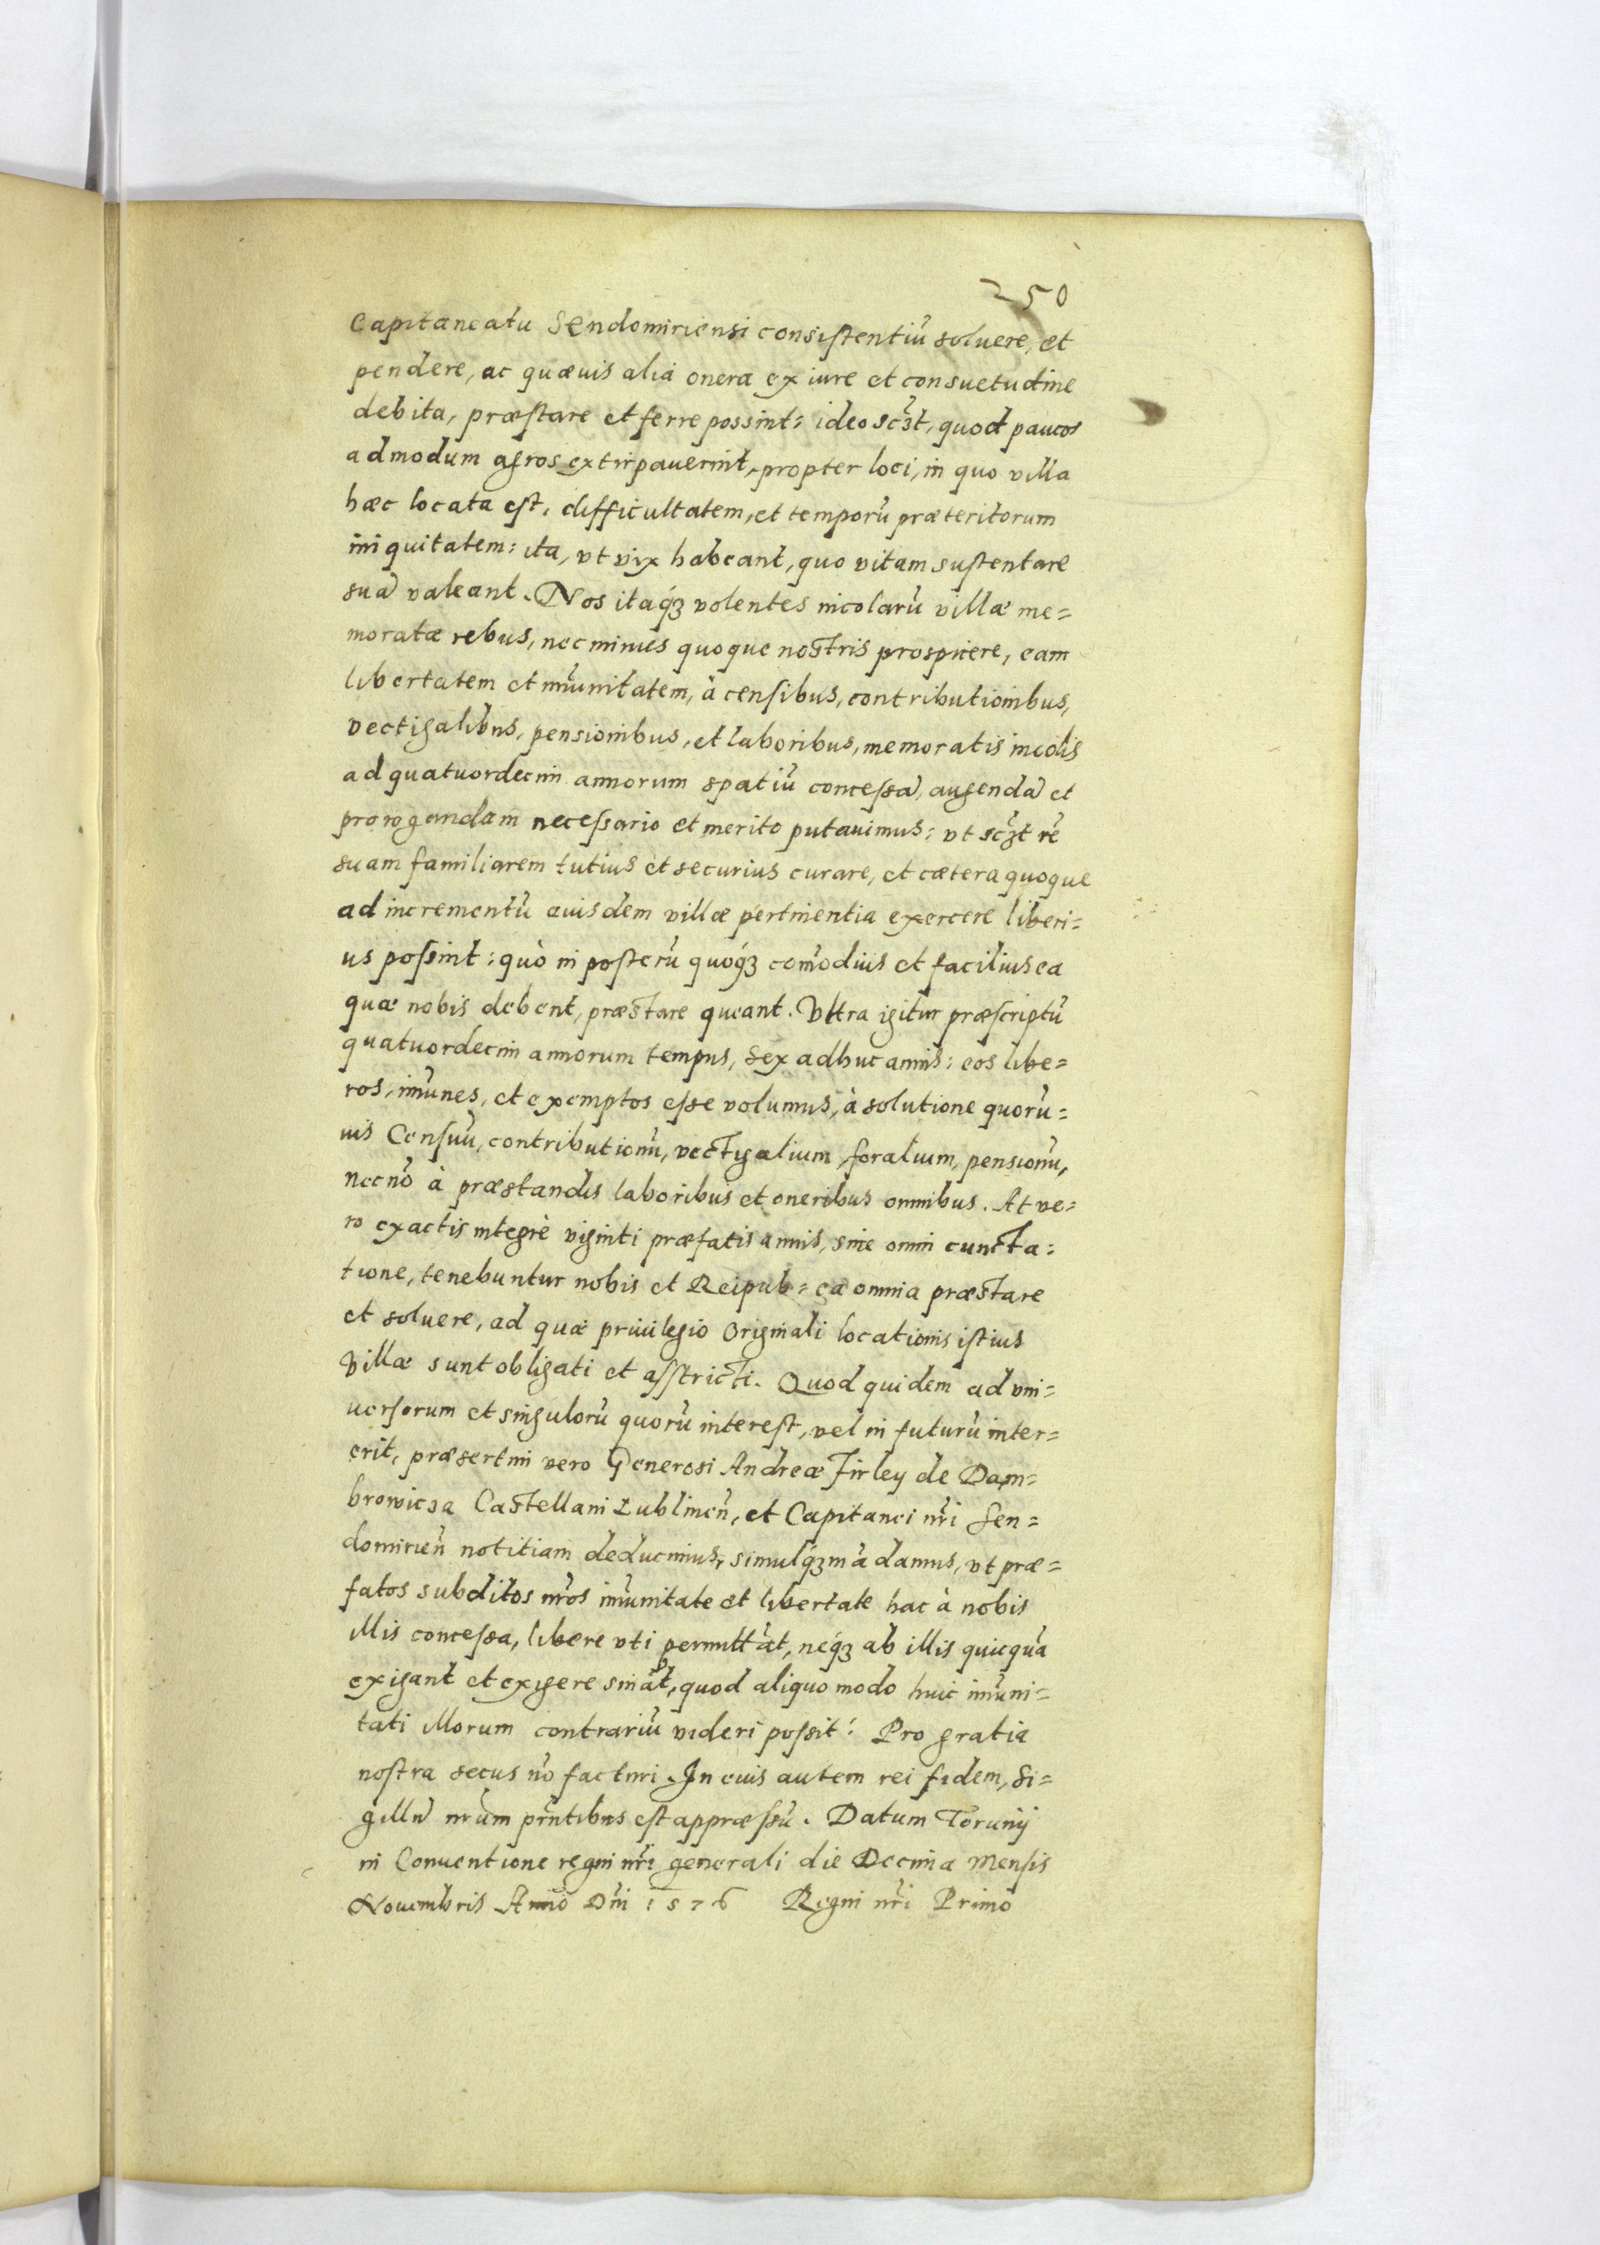 250
Capitaneatu Sendomiriensi consistentiũ soluere, et
pendere, ac quæuis alia onera ex iure et consuetudine
debita, præstare et ferre possint: ideo scꝫt, quod paucos
admodum agros extirpauerint, propter loci, in quo villa
hæc locata est, difficultatem, et temporũ præteritorum
iniquitatem: ita, vt vix habeant, quo vitam sustentare
suã valeant. Nos itaqꝫ volentes incolarũ villæ me=
moratæ rebus, nec minus quoque nostris prospicere, eam
libertatem et im̃unitatem, à censibus, contributionibus,
vectigalibus, pensionibus, et laboribus, memoratis incolis
ad quatuordecim annorum spatiũ concessã, augendã et
prorogandam necessario et merito putauimus: vt scꝫt rẽ
suam familiarem tutius et securius curare, et cætera quoque
ad incrementũ euisdem villæ pertinentia exercere liberi=
us possint: quò in posterũ quoqꝫ com̃odius et facilius ea
quæ nobis debent, præstare queant. Vltra igitur præscriptũ
quatuordecim annorum tempus, sex adhuc annis: eos libe=
ros, im̃unes, et exemptos esse volumus, à solutione quorũ=
uis Censuũ, contributionũ, vectigalium, foralium, pensionũ,
necnõ à præstandis laboribus et oneribus omnibus. At ve=
ro exactis integrè viginti præfatis annis, sine omni cuncta=
tione, tenebuntur nobis et Reipub= ea omnia præstare
et soluere, ad quæ priuilegio Originali locationis istius
Villæ sunt obligati et asstricti. Quod quidem ad vni=
uersorum et singulorũ quorũ interest, vel in futurũ inter=
erit, præsertim vero Generosi Andreæ Firley de Dam=
browicza Castellani Lublineñ, et Capitanei nr̃i Sen=
domirieñ notitiam deducimus, simulqꝫ mãdamus, vt præ=
fatos subditos nr̃os im̃unitate et libertate hac à nobis
illis concessa, libere vti permittãt, neqꝫ ab illis quicquã
exigant et exigere sinãt, quod aliquo modo huic im̃uni=
tati illorum contrariũ videri possit: Pro gratia
nostra secus nõ facturi. In cuis autem rei fidem, Si=
gillũ nr̃um pr̃ntibus est appræssũ. Datum Torunij
in Conuentione regni nr̃i generali die Decima Mensis
Nouembris Anno Dñi 1576 Regni nr̃i Primo